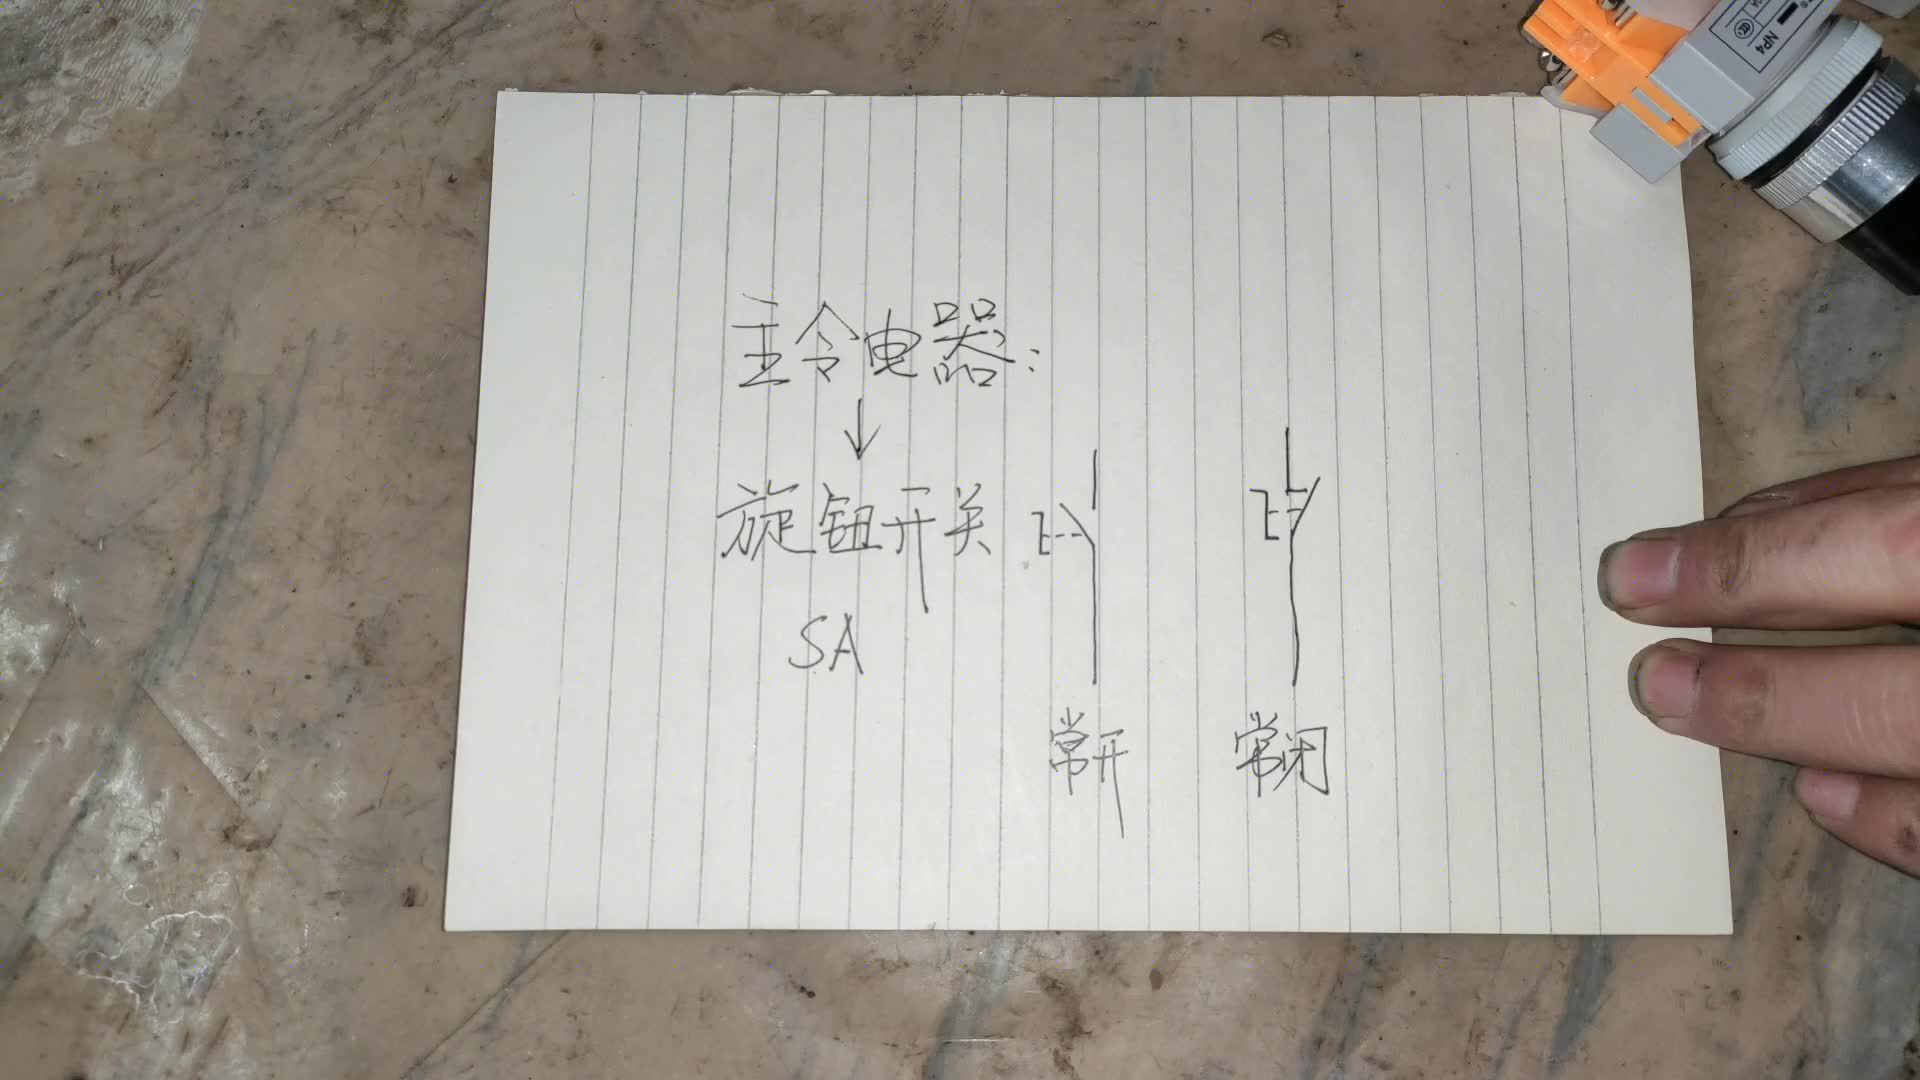 主令电器:
旋钮开关
SA
常开
常闭
NP4